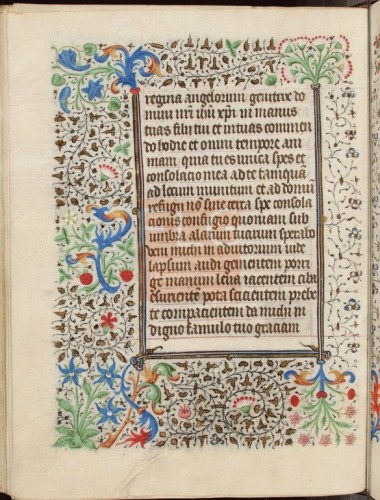 regina angelorum genitrix do
mini nr̄i ihū xpī in manus
tuas filii tui et in tuas commen
do hodie et omni tempore ani
mam quia tu es unica spes et
consolacio mea ad te tamquā
ad locum munitum et ad domū
refugii sine certa spe consola
cionis confugio quoniam sub
umbra alarum tuarum sperabo
deui michi in adiutorium uide
lapsum audi gementem porri
ge manum leua iacentem ciba
esurientem pota scicientem prebe
te compacientem da michi in
digno famulo tuo graciam